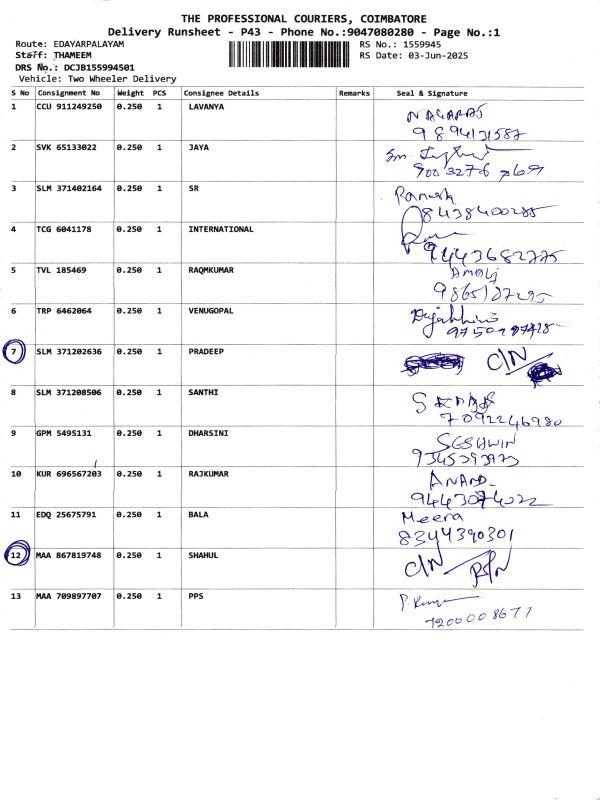 THE PROFESSIONAL COURIERS, COIMBATORE
Delivery Runsheet - P43 - Phone No.:9047080280 - Page No.:1
Route: EDAYARPALAYAM RS No.: 1559945
Staff: THAMEEM RS Date: 03-Jun-2025
DRS No.: DCJB155994501
Vehicle: Two Wheeler Delivery
S No Consignment No Weight PCS Consignee Details Remarks Seal & Signature
1 CCU 911249250 0.250 1 LAVANYA NAGARAJ
9894131587
2 SVK 65133022 0.250 1 JAYA
3 SLM 371402164 0.250 1 SR Ramesh
8438400285
4 TCG 6041178 0.250 1 INTERNATIONAL
9443682775
5 TVL 185469 0.250 1 RAQMKUMAR
6 TRP 6462064 0.250 1 VENUGOPAL
7 SLM 371202636 0.250 1 PRADEEP C/N
8 SLM 371208506 0.250 1 SANTHI
7092246980
9 GPM 5495131 0.250 1 DHARSINI
10 KUR 696567203 0.250 1 RAJKUMAR ANAND
9443074022
11 EDQ 25675791 0.250 1 BALA Meera
8344390301
12 MAA 867819748 0.250 1 SHAHUL C/N
13 MAA 709897707 0.250 1 PPS
7200008677